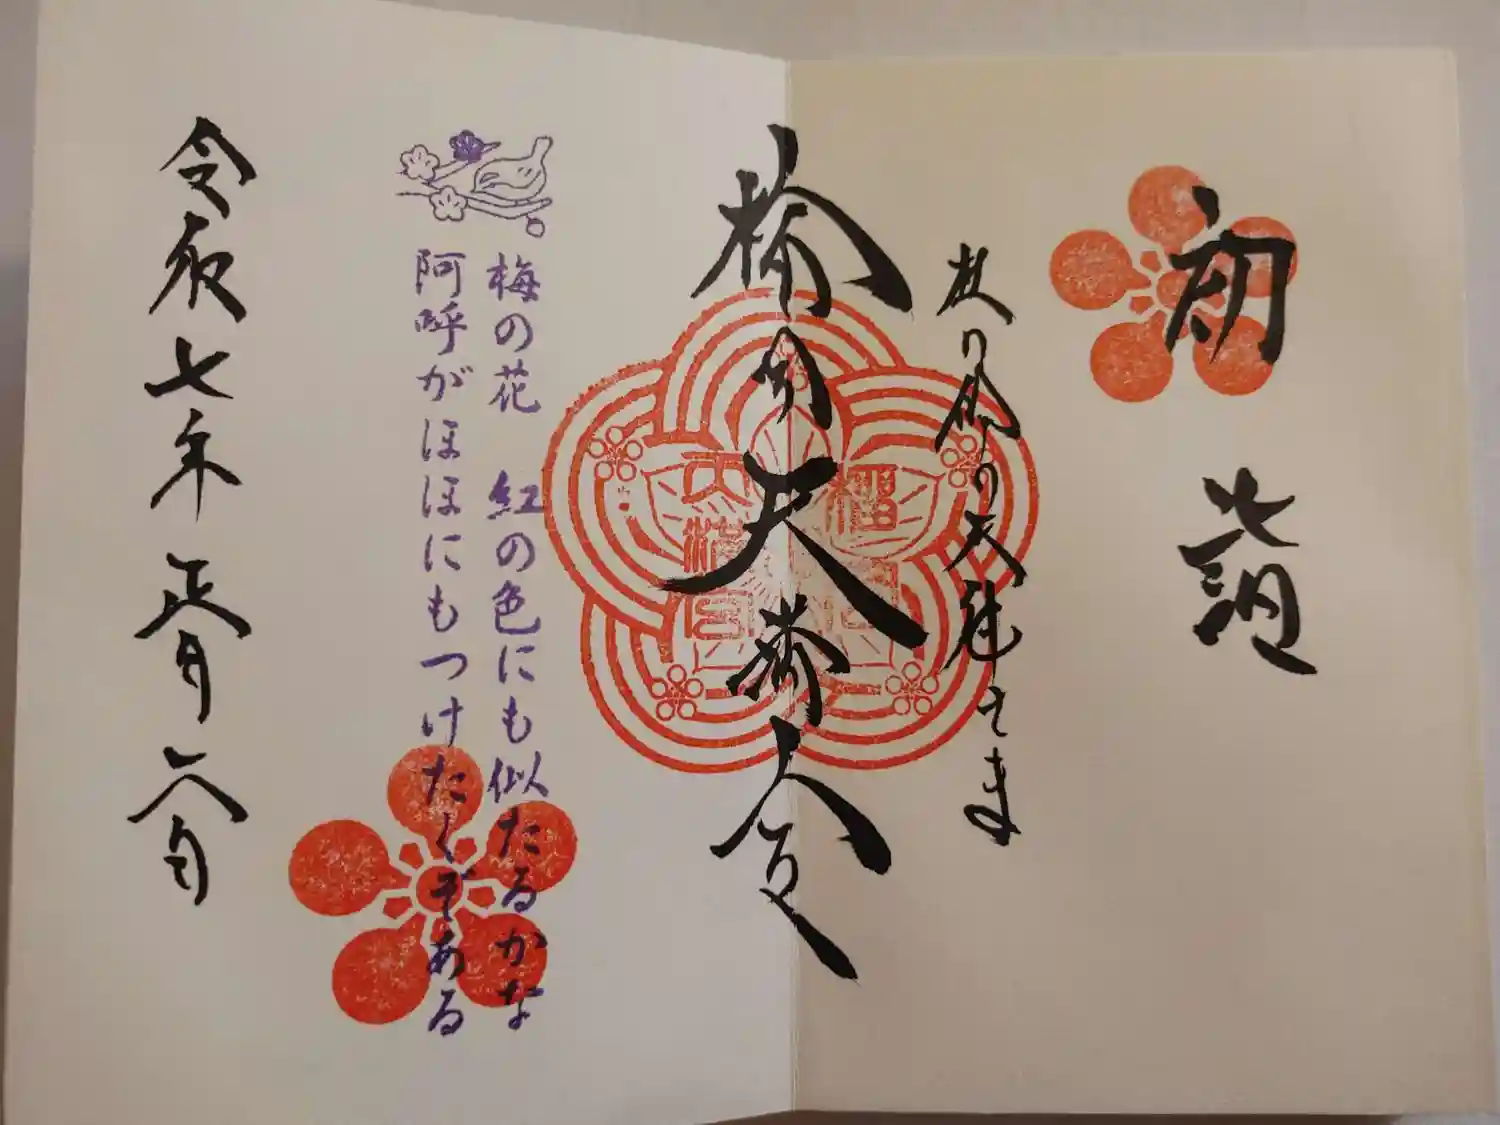 初詣
杜の都の天神さま
榴岡天満宮
榴岡
天満宮
梅の花 紅の色にも似たるかな
阿呼がほほにもつけたくぞある
令和七年正月六日